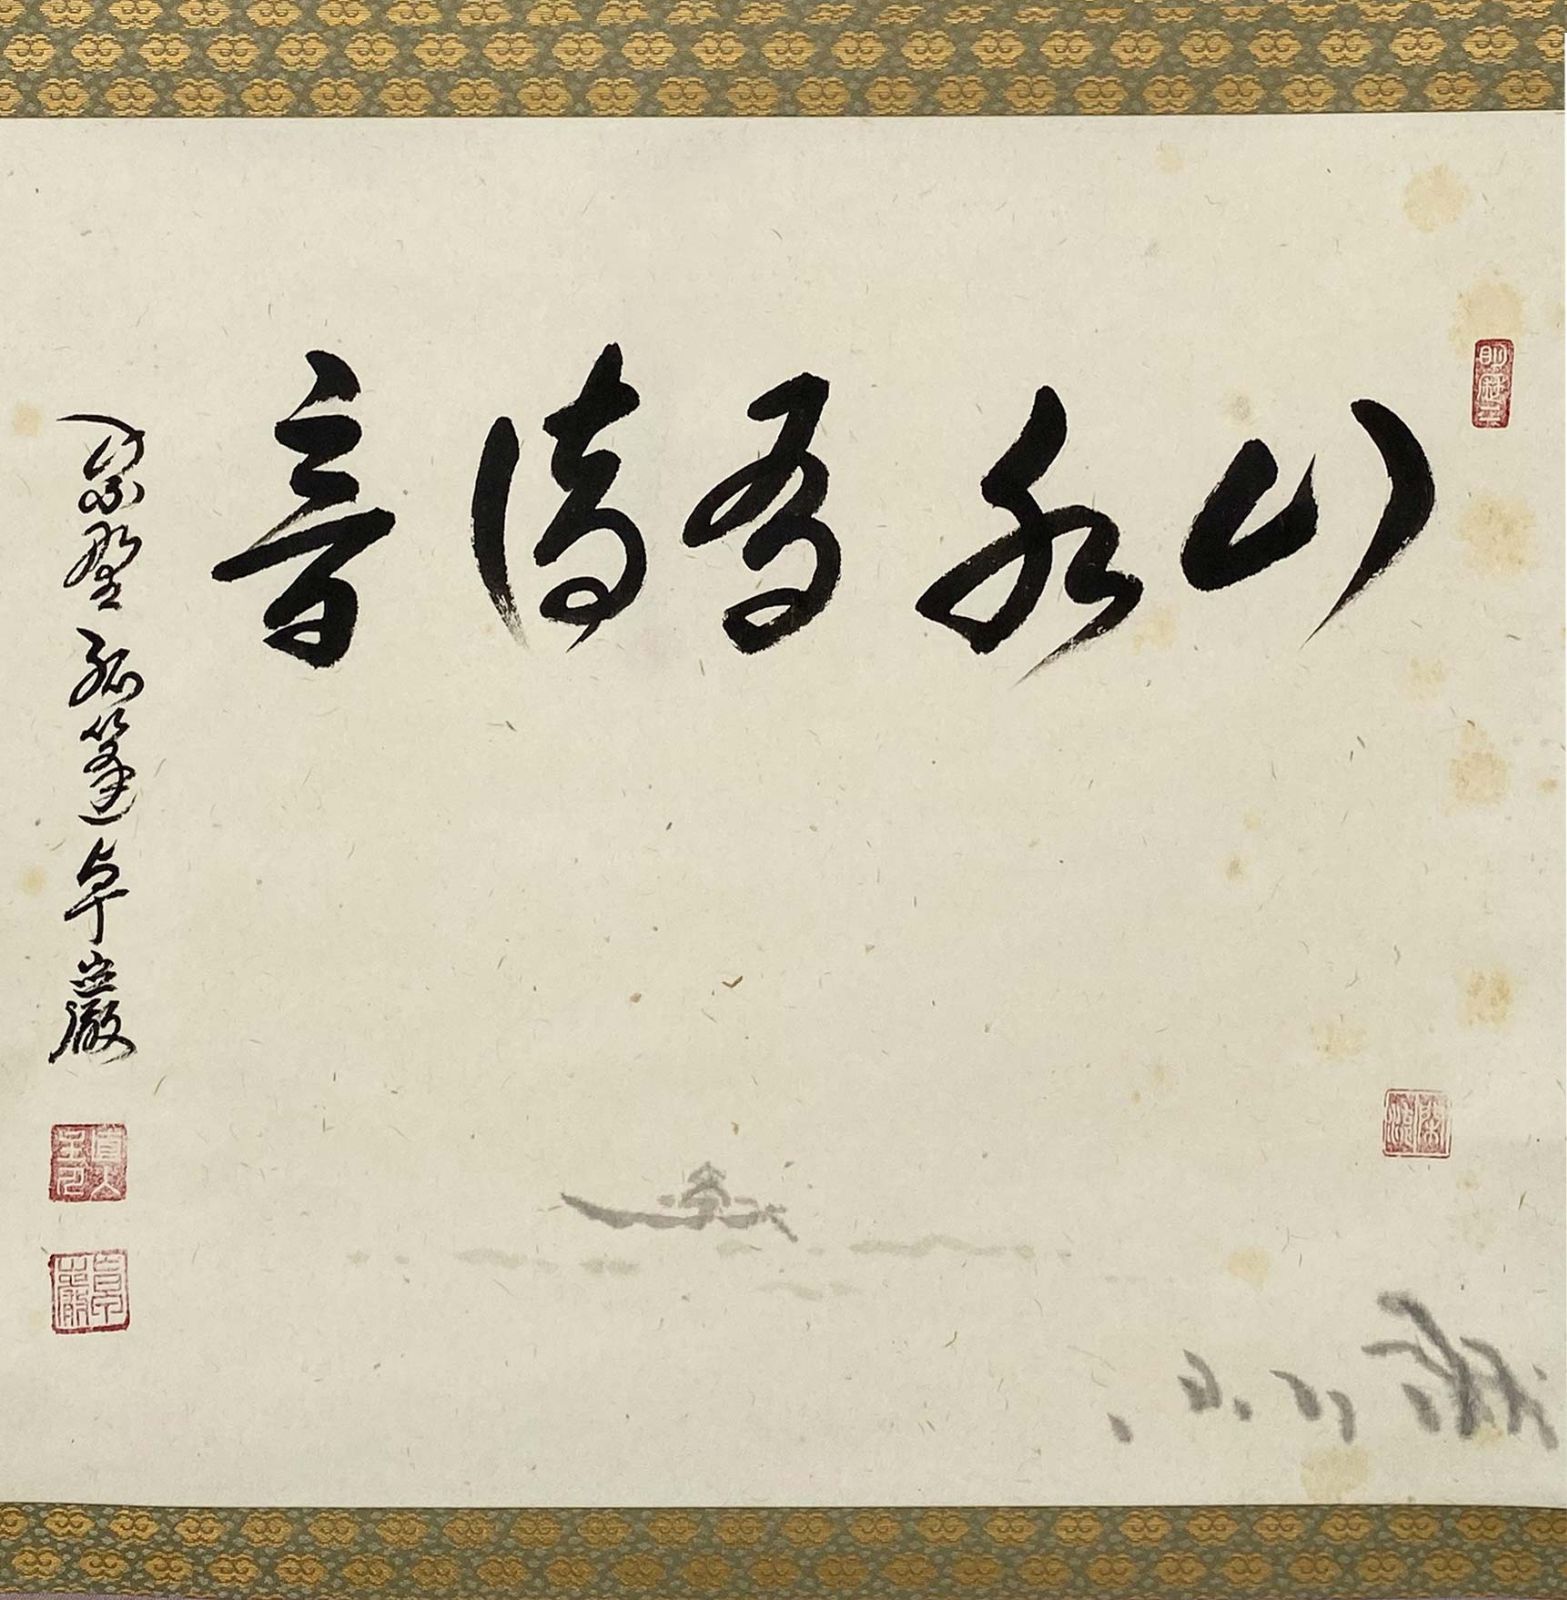 山水有清音
紫野孤篷卓巖
卓巖